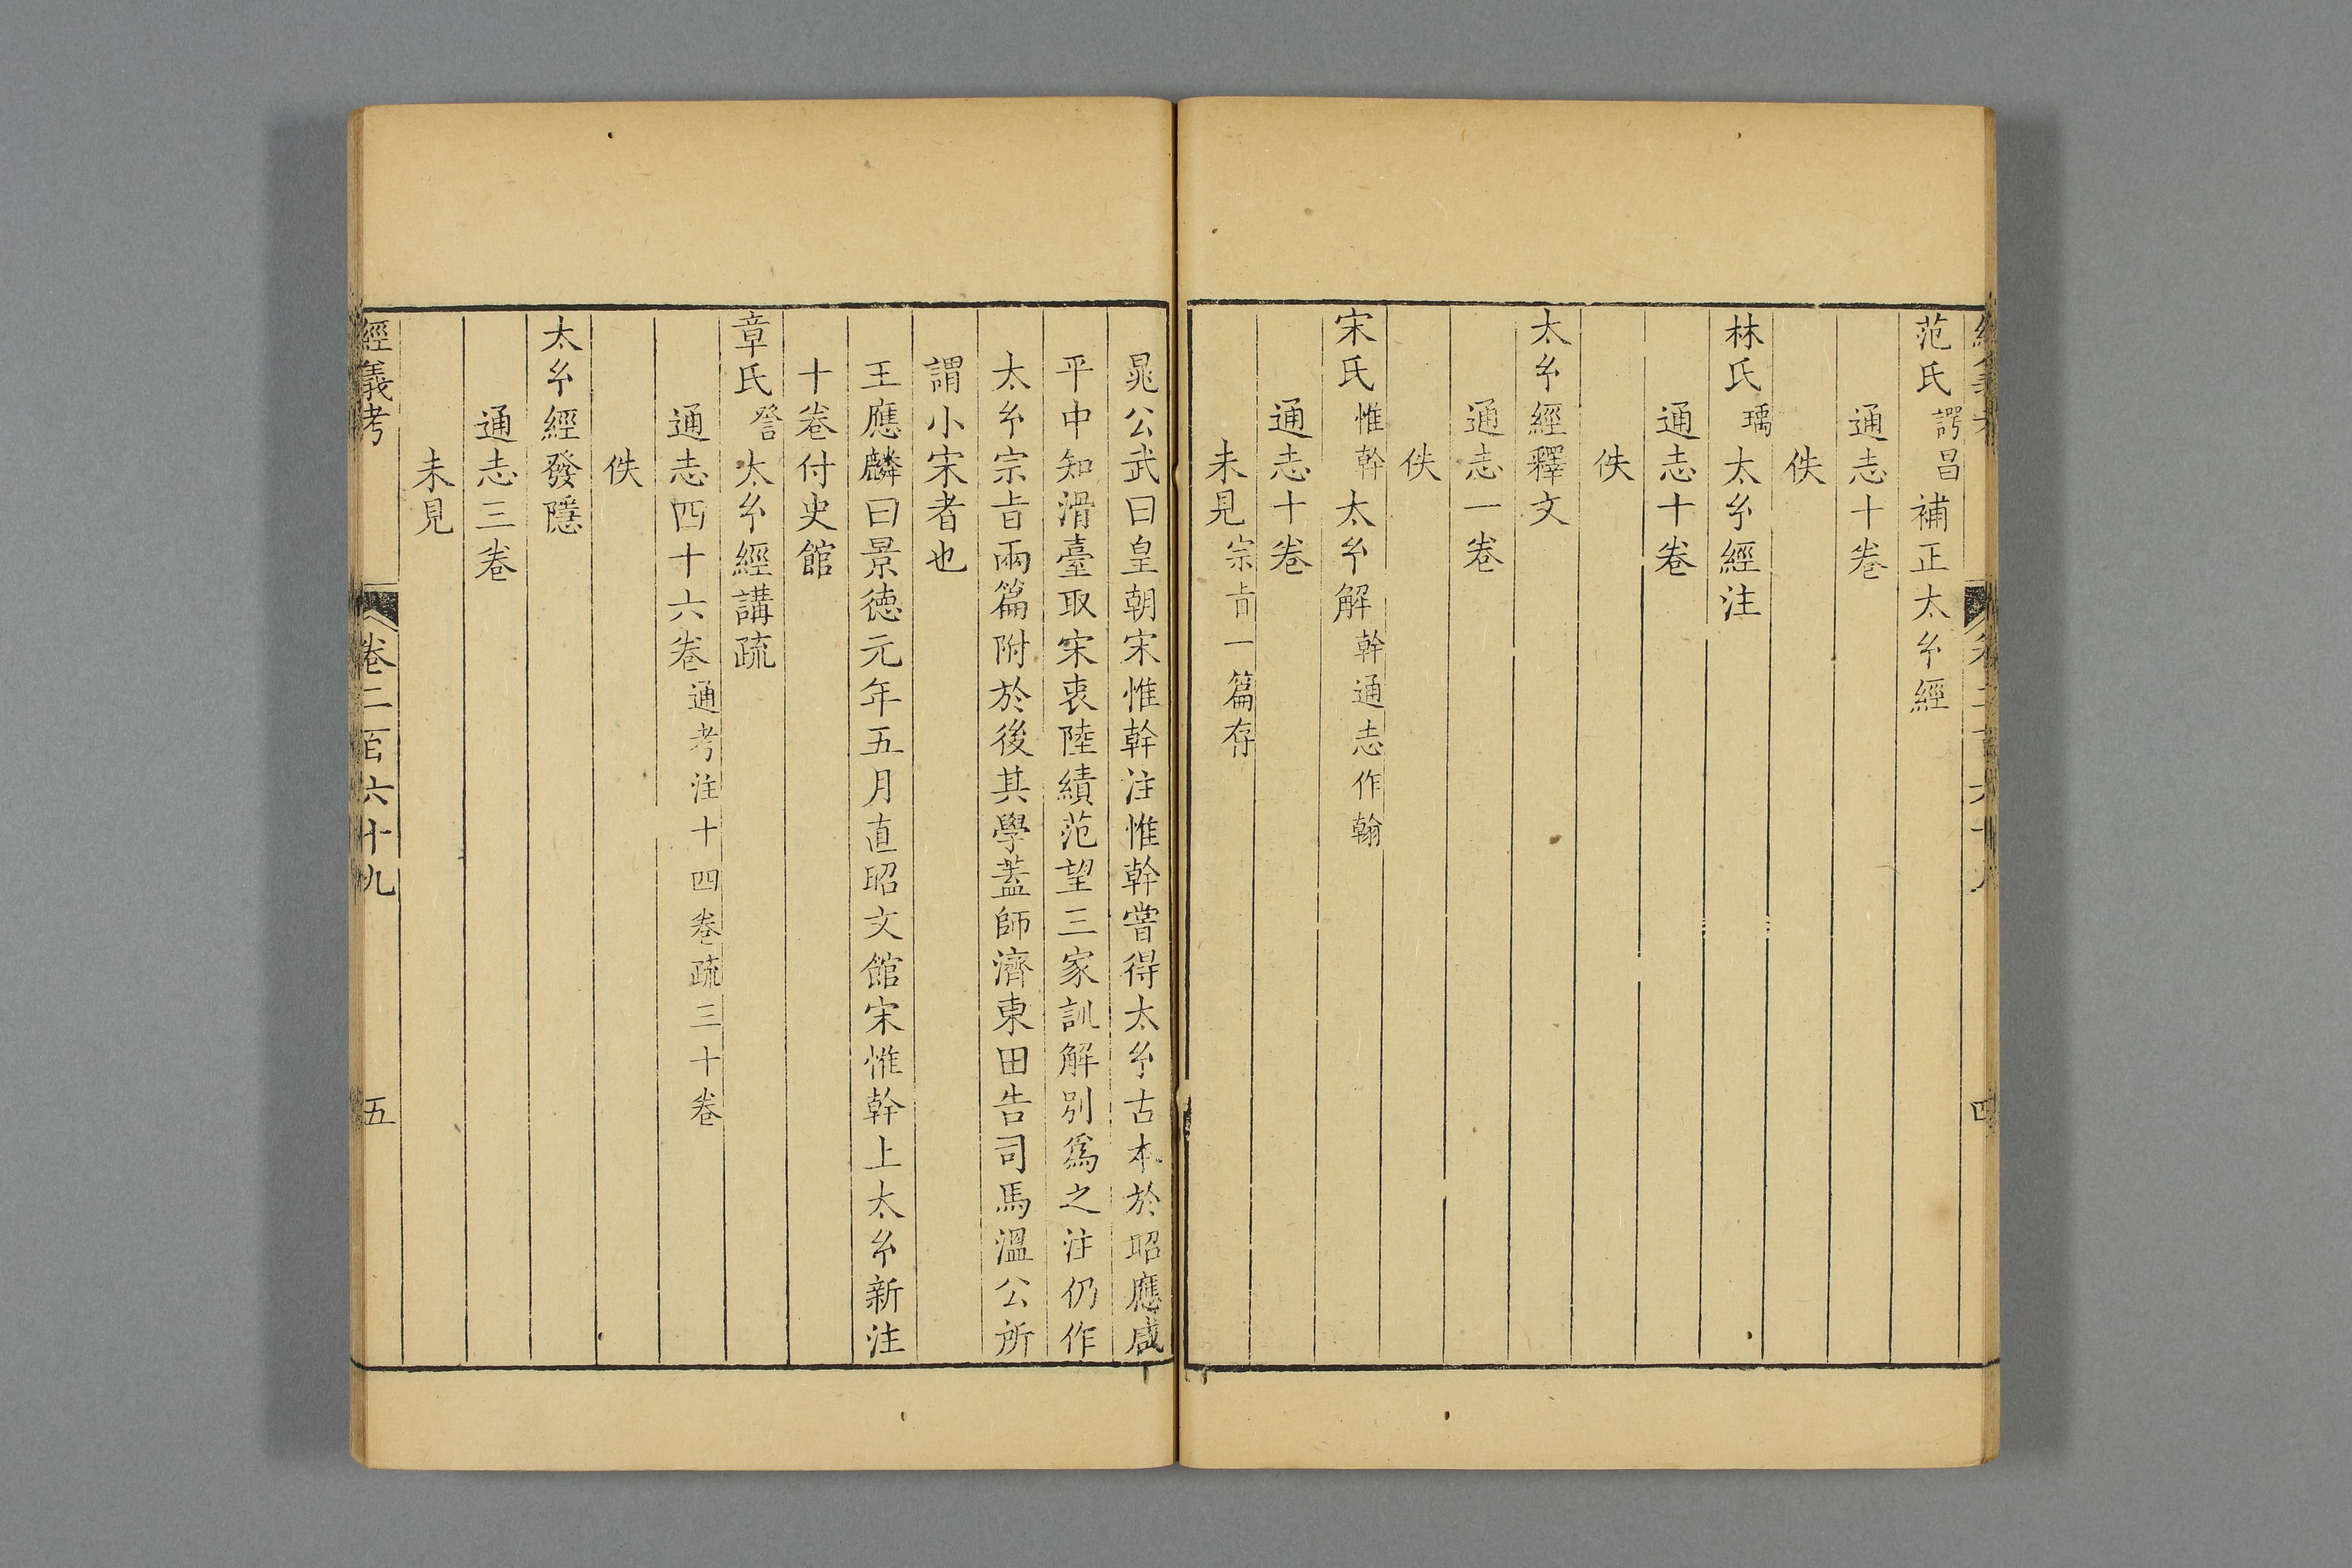 范氏諤昌補正太𢆯經
通志十卷
佚
林氏瑀太𢆯經注
通志十卷
佚
太𢆯經釋文
通志一卷
佚
宋氏惟幹太𢆯解幹通志作翰
通志十卷
未見宗㫖一篇存
晁公武曰皇朝宋惟幹注惟幹嘗得太𢆯古本於昭應咸
平中知滑臺取宋衷陸績范望三家訓解別爲之注仍作
太𢆯宗㫖兩篇附於後其學蓋師濟東田告司馬溫公所
謂小宋者也
王應麟曰景德元年五月直昭文館宋惟幹上太𢆯新注
十卷付史館
章氏詧太𢆯經講疏
通志四十六卷通考注十四卷疏三十卷
佚
太𢆯經發隱
通志三卷
未見
經義考 卷二百六十九 五